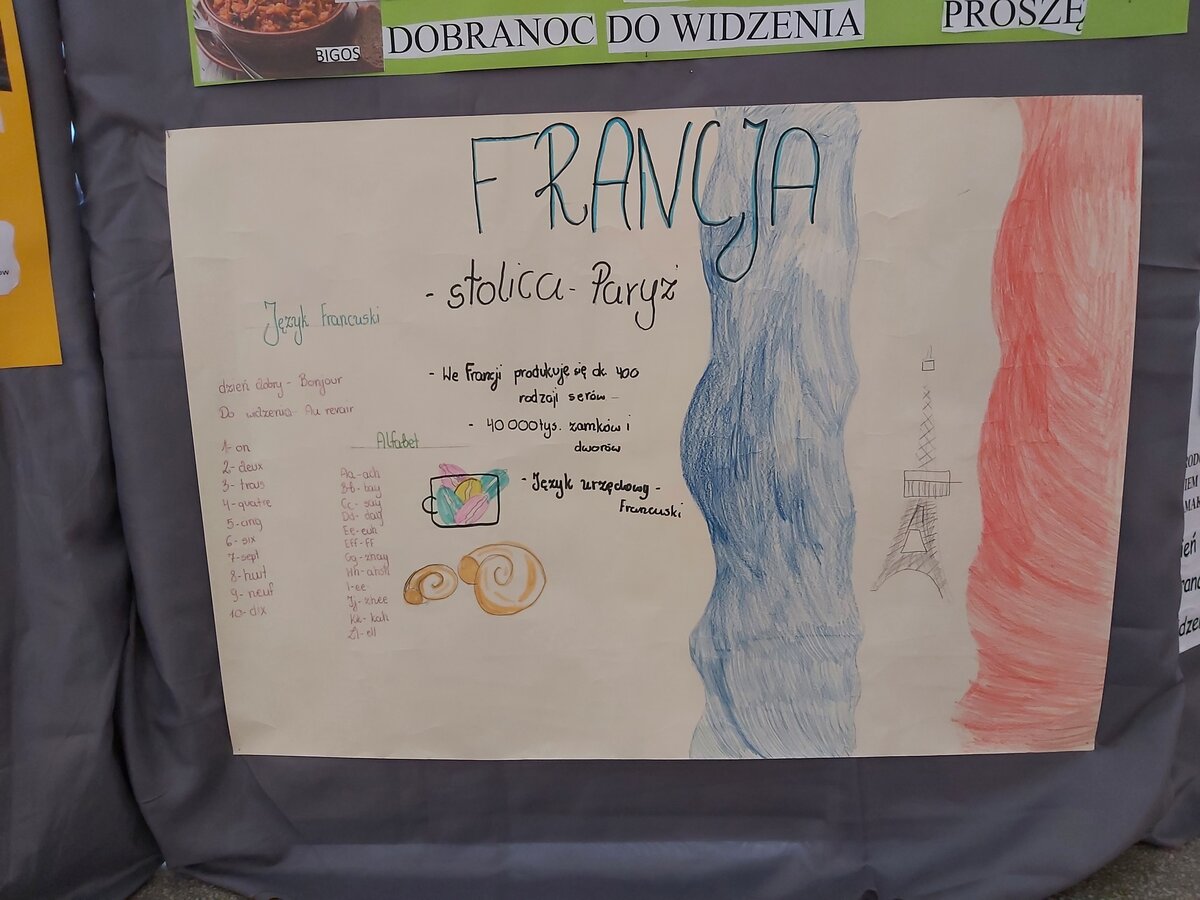 BIGOS
DOBRANOC DO WIDZENIA
PROSZĘ
FRANCJA
- stolica - Paryż
Język Francuski
dzień dobry - Bonjour
Do widzenia - Au revair
1- on
2- deux
3- trous
4- quatre
5- anq
6- six
7- sept
8- huit
9- neuf
10- dix
Alfabet
Aa - ach
Bb - bay
Cc - say
Dd - day
Ee - euh
Eff - ff
Gg - znay
Hh - ahsh
I - ee
Jj - znee
Kk - kah
Ll - ell
- We Francji produkuje się ok. 400
rodzaji serów -
- 40 000 tyś. zamków i
dworów
- Język urzędowy -
Francuski